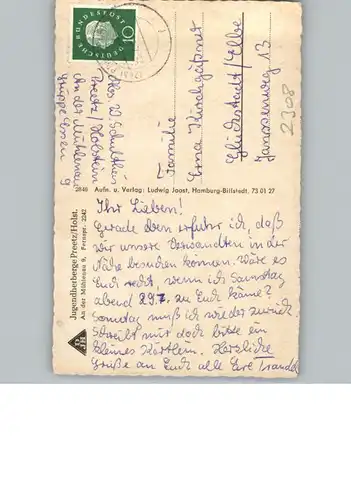 DEUTSCHE BUNDESPOST
10
Abs. W. Schultheis
Preetz/Holstein
An der Mühlenau
Gruppe Essen 9
Familie
Erna Kirchgässner
Glückstadt/Elbe
Janssenweg 13
2308
2840 Aufn. u. Verlag: Ludwig Joost, Hamburg-Billstedt, 73 01 27
Jugendherberge Preetz/Holst.
An der Mühlenau 9, Fernspr. 2242
DJH
Ihr Lieben!
Gerade eben erfuhr ich, daß
wir unsere Verwandten in der
Nähe besuchen können. Wäre es
Euch recht, wenn ich Samstag
abend 29.7. zu Euch käme?
Sonntag muß ich wieder zurück.
Schreibt mir doch bitte ein
kleines Kärtlein. Herzliche
Grüße an Euch alle Eure Traudel